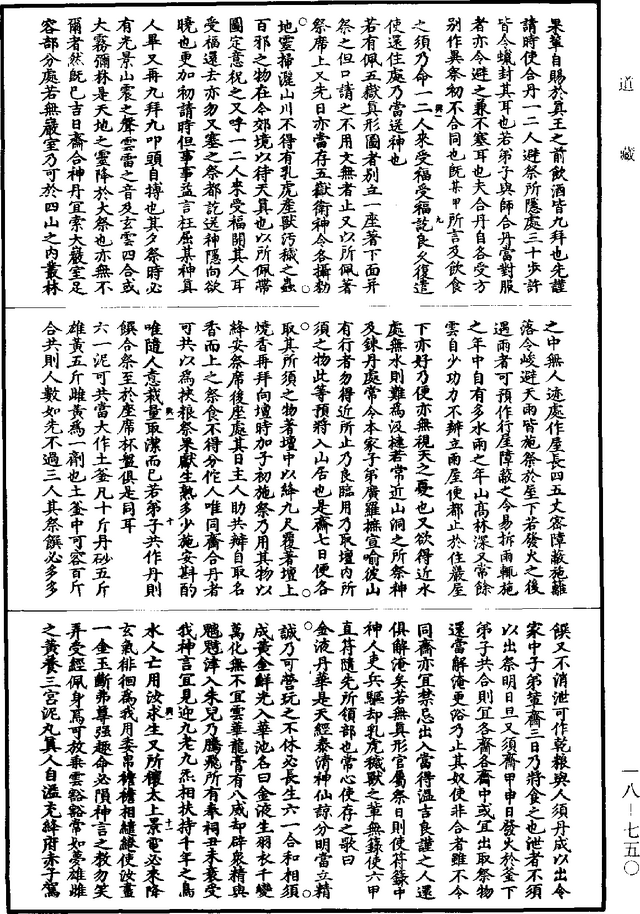 道藏
果輩自賜於真王之前飲酒皆九拜也先謹
請時使合丹一二人避祭所隱處三十步許
皆令蠟封其耳也若弟子與師合丹當對服
者亦令避之兼不塞耳也夫合丹自各受方
別作異祭初不合同也既其甲所言及飲食
之須乃命一二人來受福受福訖良久復遣
使還住處乃當送神也
若有佩五嶽真形圖者別立一座著下面并
祭之但口請之不用文無者止又以所佩著
祭席上又先日亦當存五嶽衛神令各攝勑
地靈掃灑山川不得有乳虎產獸汚穢之蟲
百邪之物在令郊境以待天真也以所佩帶
圖定意祝之又呼一二人來受福開其人耳
受福還去亦勿又塞之祭都訖送神隱向欲
曉也更加初請時但事事益言枉屈其神真
人畢又再九拜九叩頭自搏也其夕祭時必
有光景山震之聲雲雷之音及玄雲四合或
大霧彌林是天地之靈降於大祭也亦無不
爾者然既巳吉日齋合神丹宜索大巖室足
容部分處若無巖室乃可於四山之內叢林
之中無人迹處作屋長四五丈密障蔽施籬
落令峻避天雨皆施祭於屋下若發火之後
遇雨者可預作行屋障蔽之令易拆雨輒施
之年中自有多水雨之年山髙林深人常餘
雲自少功力不辨立雨屋使都止於住巖屋
下亦好乃便亦無視天之憂也又欲得近水
處無水則難為汲撻若常近山洞之所祭神
及鍊丹處常令本家子弟廣羅撫宣喻彼山
有行者勿得近所止乃良臨用乃取壇內所
須之物此等預將入山居也是齋七日便各
取其所須之物著壇中以絳九尺覆著壇上
燒香再拜向壇時加子初施祭乃用其物以
絳安祭席後座處其日主人助共辨自取名
香而上之祭食不得分作人唯同齋合丹者
可共以為挾粮祭果獻生熟多少施安斟酌
唯隨人意裁量取潔而已若弟子共作丹則
饌合祭至於座席杯盤俱是同耳
六一泥可共當大作土釜凡十斤丹砂五斤
雄黃五斤雌黃為一劑也土釜中可容百斤
合共則人數如先不過三人其祭饌必多多
饌又不消泄可作乾粮與人須丹成以出令
家中子弟輩齋三日乃將食之也泄者不須
以出祭明日旦又須齋甲申日發火於釜下
弟子共合則宜各齋各齋中或宜出取祭物
還當解淹更浴乃止其奴使非合者雖不令
同齋亦宜禁忌出入當得溫吉良謹之人還
俱解淹矣若無真形官屬祭日則使符籙中
神人吏兵驅却乳虎穢獸之輩無籙使六甲
直符隨先所領部也常心使存之歌曰
金液丹華是天經泰清神仙諒分明當立精
誠乃可營玩之不休必長生六一合和相須
成黃金鮮光入華池名曰金液生羽衣千變
萬化無不宜雲華龍膏有八威却辟衆精與
魑魅津入朱兒乃騰飛所有奉祠丑未衰受
我神言宜見迎九老九炁相扶持千年之鳥
水人亡用汝求生又所禳太上景電必來降
玄氣徘徊為我用委帛襜襜相繾綣使汝畫
一金玉斷弗尊强趣命必隕神言之教勿笑
弄受經佩身焉可放乘雲豁豁常如夢雄雌
之黃養三宮泥丸真人自溢充絳府赤子駕
一八—七五〇